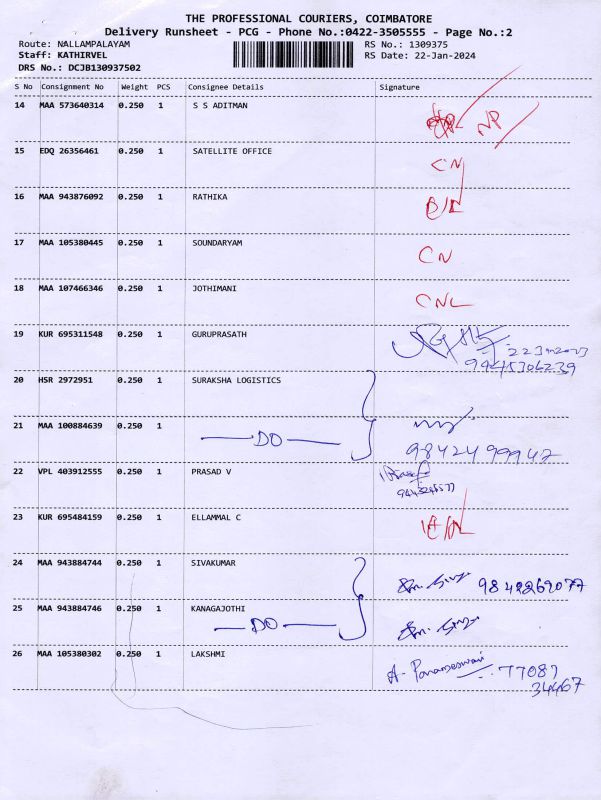 THE PROFESSIONAL COURIERS, COIMBATORE
Delivery Runsheet - PCG - Phone No.:0422-3505555 - Page No.:2
Route: NALLAMPALAYAM RS No.: 1309375
Staff: KATHIRVEL RS Date: 22-Jan-2024
DRS No.: DCJB130937502
S No Consignment No Weight PCS Consignee Details Signature
14 MAA 573640314 0.250 1 S S ADITMAN NP
15 EDQ 26356461 0.250 1 SATELLITE OFFICE CN
16 MAA 943876092 0.250 1 RATHIKA
17 MAA 105380445 0.250 1 SOUNDARYAM CN
18 MAA 107466346 0.250 1 JOTHIMANI CNL
19 KUR 695311548 0.250 1 GURUPRASATH
9945306239
20 HSR 2972951 0.250 1 SURAKSHA LOGISTICS
21 MAA 100884639 0.250 1
DO 9842499947
22 VPL 403912555 0.250 1 PRASAD V
23 KUR 695484159 0.250 1 ELLAMMAL C
24 MAA 943884744 0.250 1 SIVAKUMAR 9842269077
25 MAA 943884746 0.250 1 KANAGAJOTHI
DO
26 MAA 105380302 0.250 1 LAKSHMI A. Parameswari 77087
34467